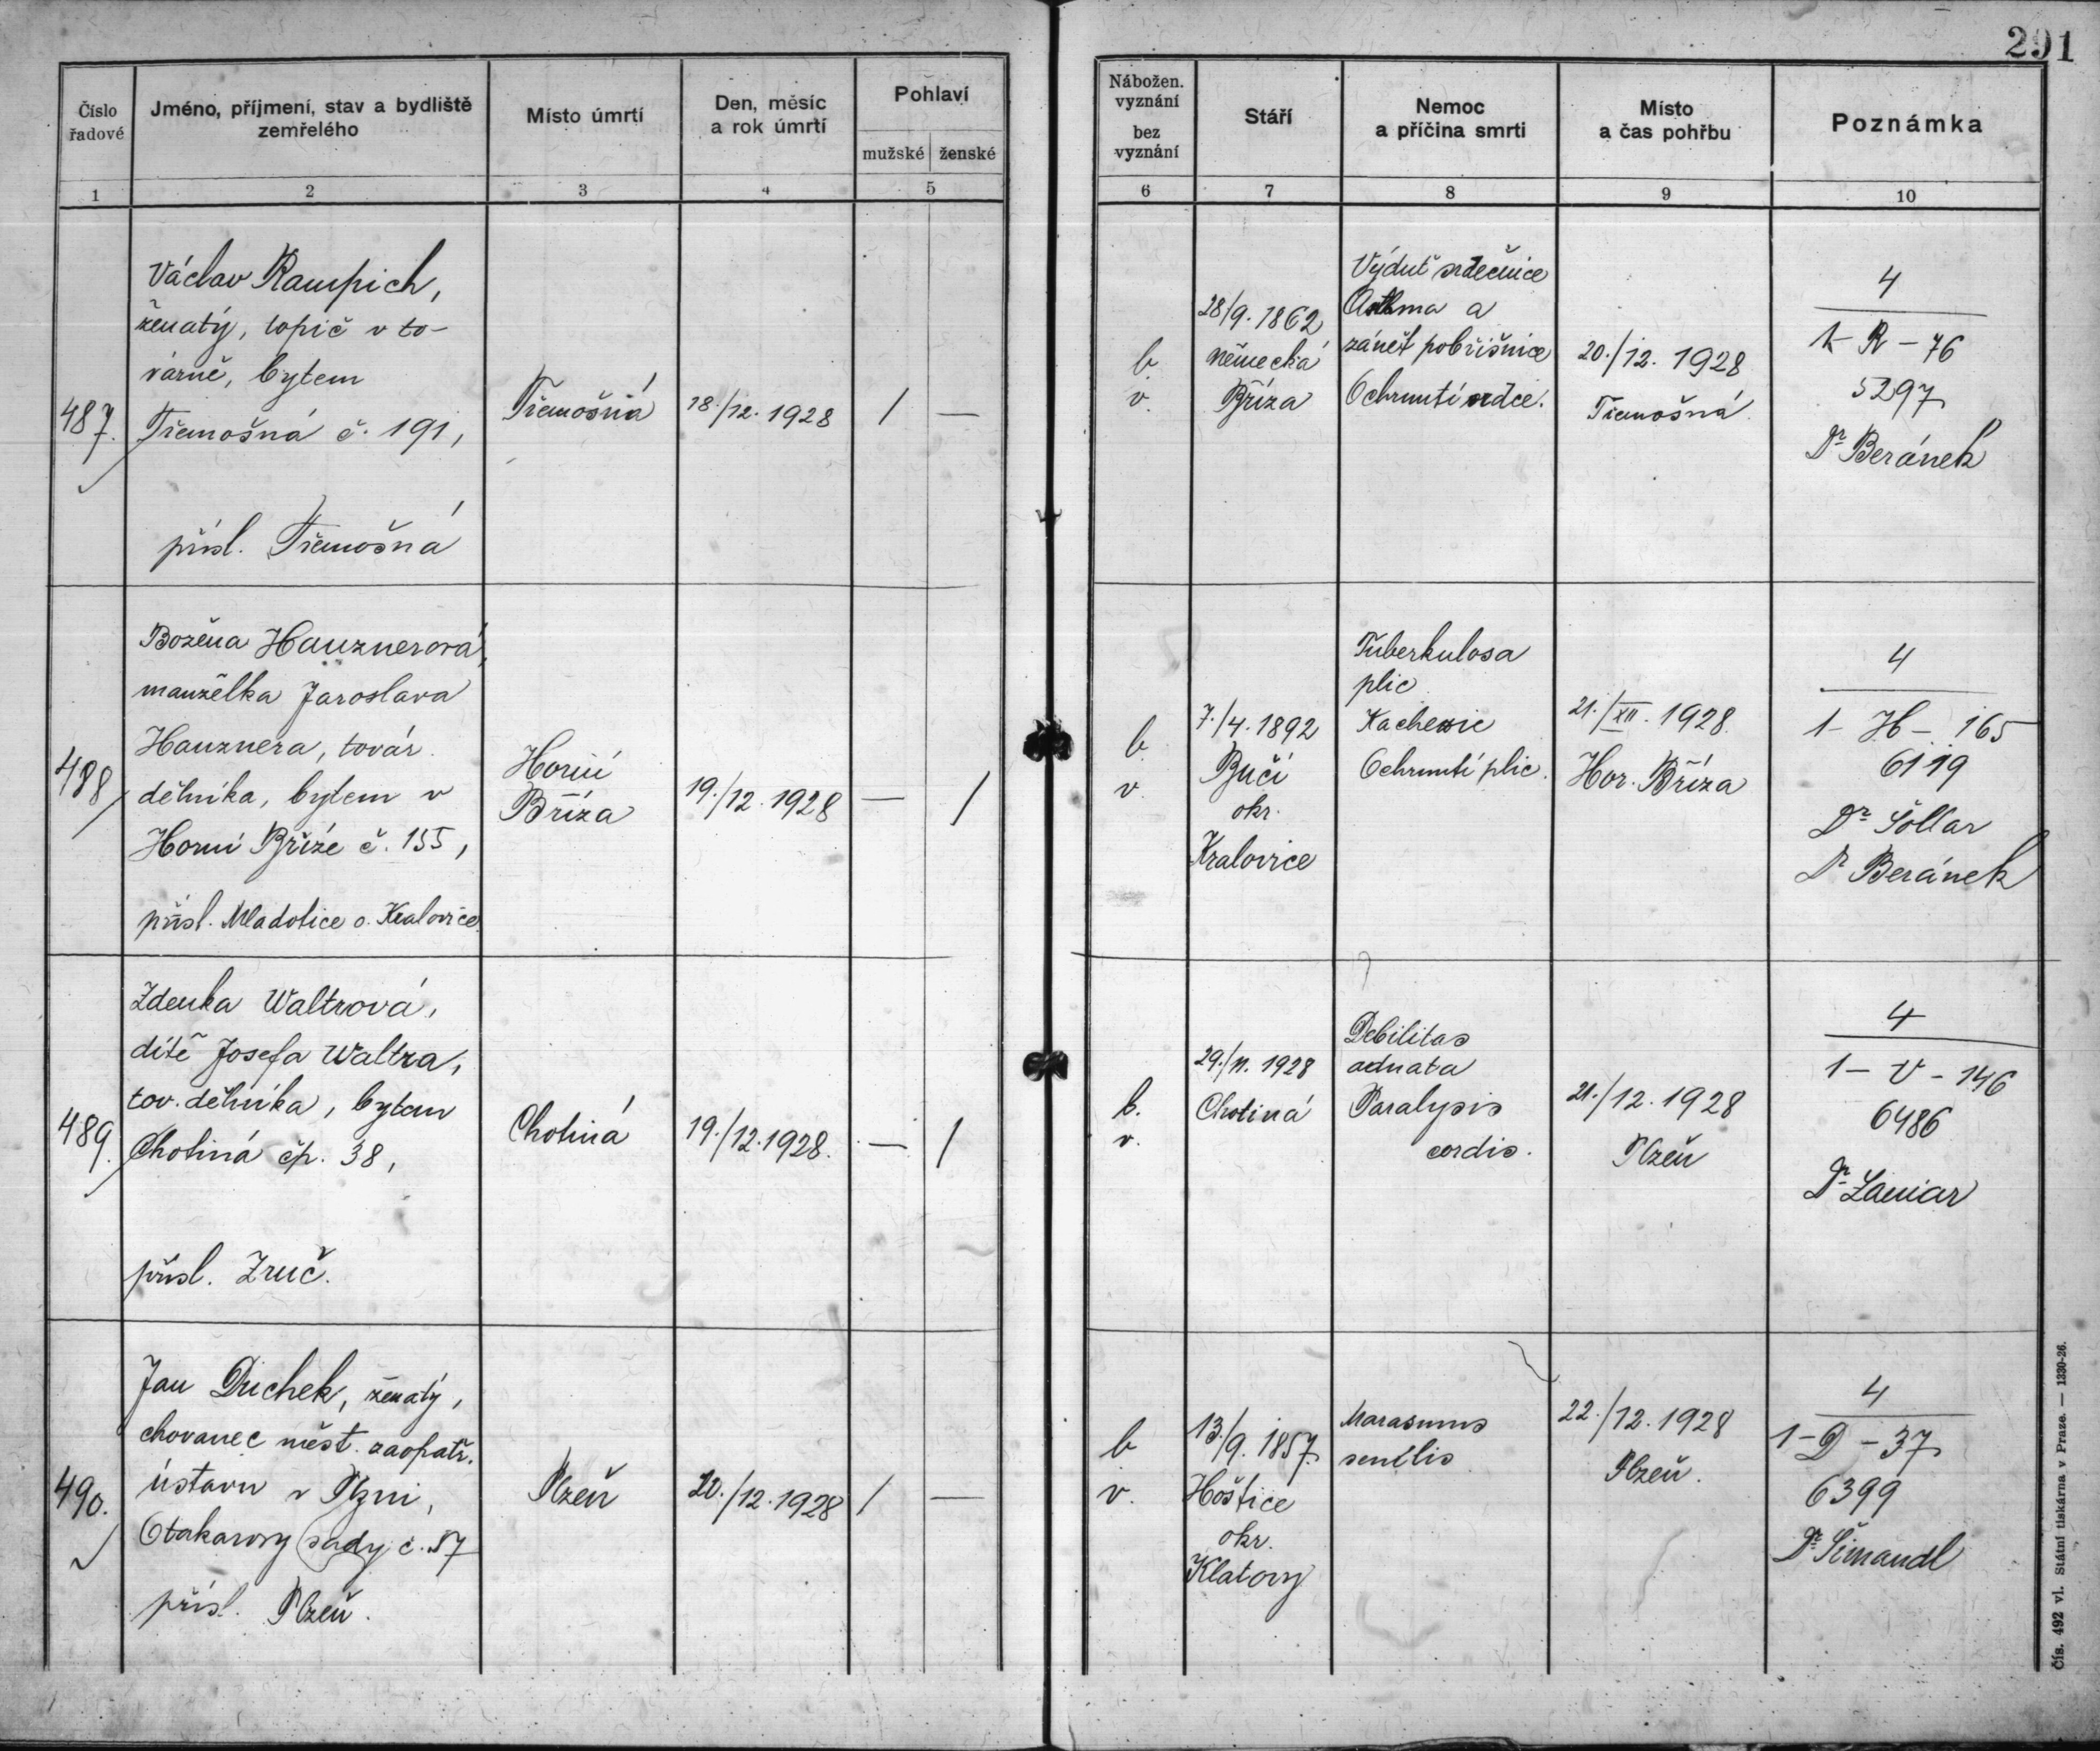 291
Číslo řadové
Jméno, příjmení, stav a bydliště zemřelého
Místo úmrtí
Den, měsíc a rok úmrtí
Pohlaví
mužské ženské
Nábožen. vyznání
bez vyznání
Stáří
Nemoc a příčina smrti
Místo a čas pohřbu
Poznámka
1 2 3 4 5 6 7 8 9 10
487.
Václav Raupich,
ženatý, topič v to-
várně, bytem
Třemošná č. 191,
přísl. Třemošná
Třemošná
18./12. 1928
/ —
b.
v.
28/9. 1862
německá
Bříza
Výduť srdečnice
Asthma a
zánět pobřišnice
Ochrnutí srdce.
20./12. 1928
Třemošná
4
1-R-76
5297
Dr Beránek
488
Božena Hauznerová,
manželka Jaroslava
Hauznera, továr.
dělníka, bytem v
Horní Bříze č. 155,
přísl. Mladotice o. Kralovice
Horní
Bříza
19./12. 1928
— /
b.
v.
7./4. 1892
Bučí
okr.
Kralovice
Tuberkulosa
plic
Kachexie
Ochrnutí plic.
21./XII. 1928.
Hor. Bříza
4
1-H-165
6119
Dr Šollar
Dr Beránek
489.
Zdenka Waltrová,
dítě Josefa Waltra,
tov. dělníka, bytem
Chotiná čp. 38,
přísl. Zruč.
Chotiná
19./12. 1928.
— /
b.
v.
29./11. 1928
Chotiná
Debilitas
adnata
Paralysis
cordis.
21./12. 1928
Plzeň
4
1-V-146
6486
Dr
490.
Jan Duchek, ženatý,
chovanec měst. zaopatř.
ústavu v Plzni,
Otakarovy sady č. 57
přísl. Plzeň.
Plzeň
20./12. 1928
/ —
b
v.
13./9. 1857.
Hoštice
okr.
Klatovy
Marasmus
senilis
22./12. 1928
Plzeň.
4
1-D-37
6399
Dr Šimandl
Čís. 492 vl. Státní tiskárna v Praze. — 1330-26.